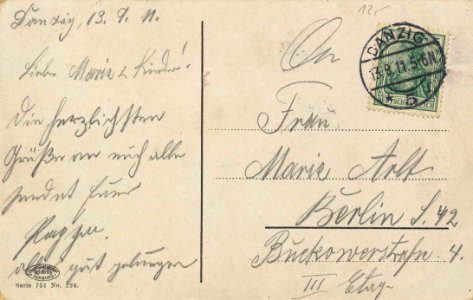 Danzig, 13. 9. 11.
Liebe Marie & Kinder!
Die herzlichsten
Grüße an euch alle
sendet Euer
Pappa.
alles gut gelungen
Serie 751 No. 224.
12,-
DANZIG
13.9.11.5-6N.
* 5
An
Frau
Marie Arlt
Berlin S. 42
Buckowerstraße 4.
III Etag.